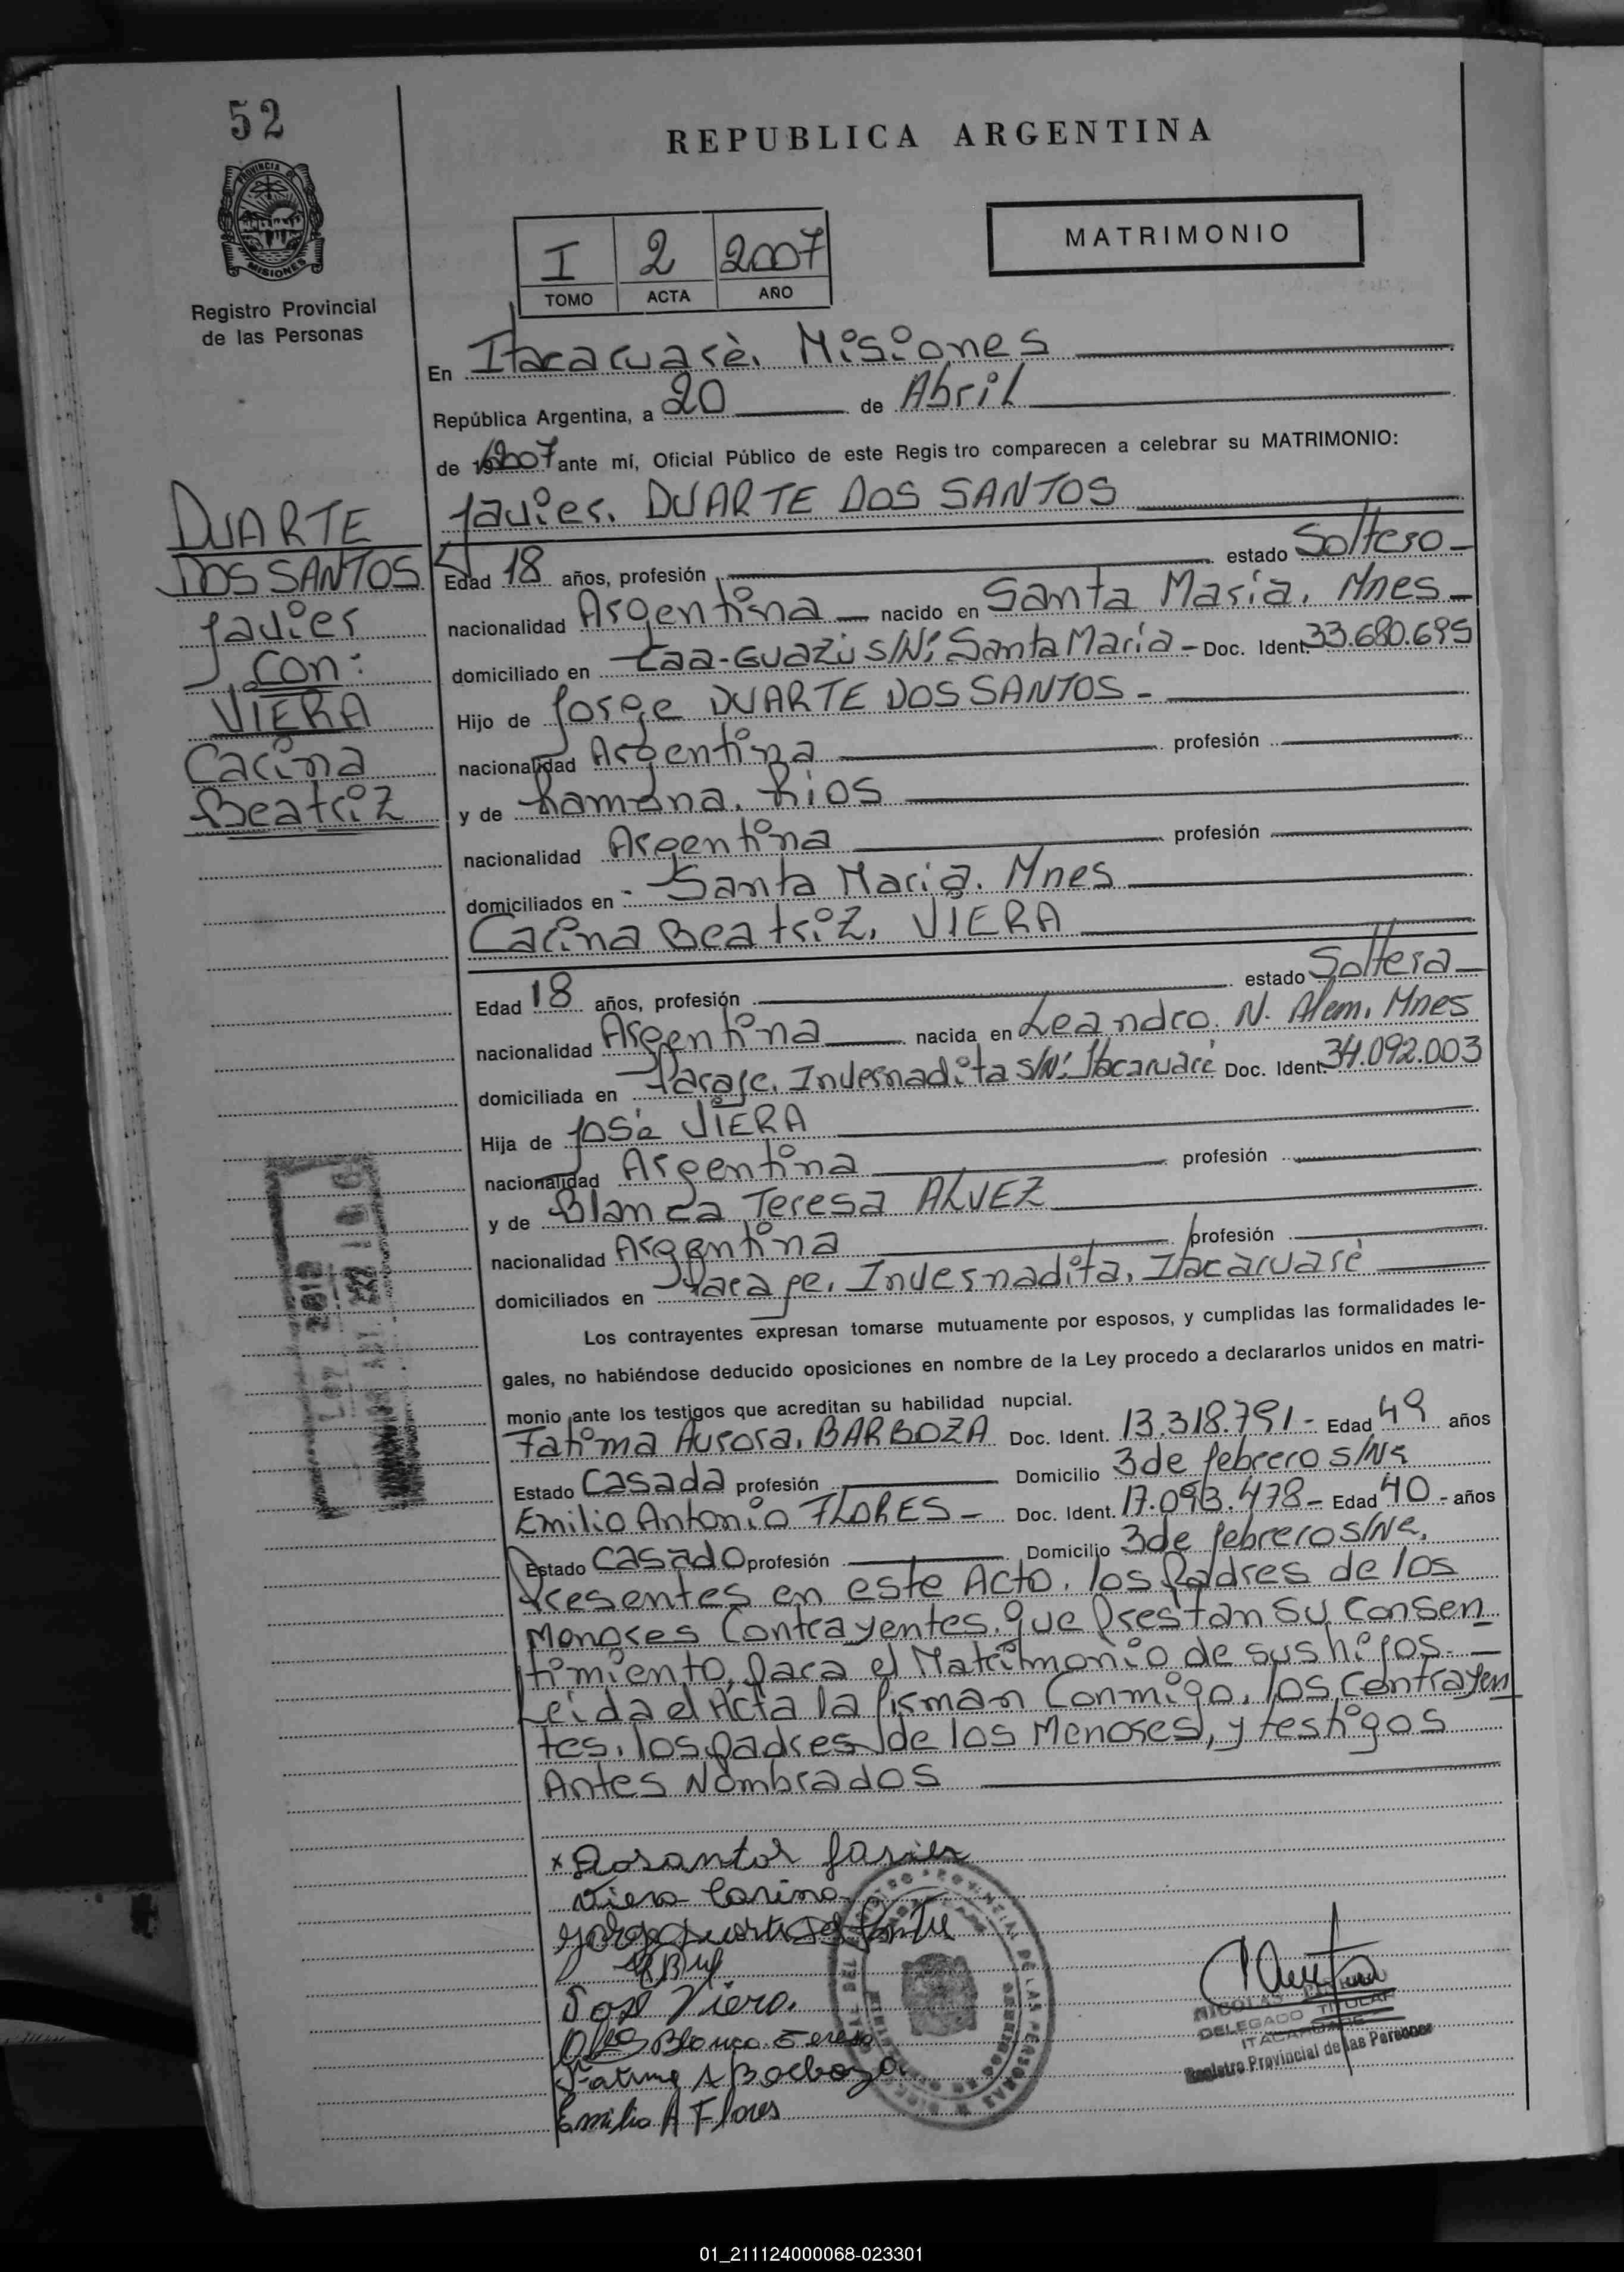 52
REPUBLICA ARGENTINA
PROVINCIA DE
MISIONES
Registro Provincial
de las Personas
I 2 2007
TOMO ACTA AÑO
MATRIMONIO
En Itacaruarè, Misiones
República Argentina, a 20 de Abril
de 2007 ante mí, Oficial Público de este Regis tro comparecen a celebrar su MATRIMONIO:
DUARTE
DOS SANTOS
Javier
Con:
VIERA
Carina
Beatriz
Javier, DUARTE DOS SANTOS
Edad 18 años, profesión estado Soltero
nacionalidad Argentina nacido en Santa María, Mnes
domiciliado en Caa-Guazú S/Nº; Santa María - Doc. Ident. 33.680.695
Hijo de Jorge DUARTE DOS SANTOS -
nacionalidad Argentina profesión
y de Ramona, Rios
nacionalidad Argentina profesión
domiciliados en - Santa Maria, Mnes
Carina Beatriz, VIERA
Edad 18 años, profesión estado Soltera
nacionalidad Argentina nacida en Leandro. N. Alem, Mnes
domiciliada en Paraje, Invernadita S/Nº; Itacaruaré Doc. Ident. 34.092.003
Hija de José VIERA
nacionalidad Argentina profesión
y de Blanca Teresa ALVEZ
nacionalidad Argentina profesión
domiciliados en Paraje, Invernadita, Itacaruaré
Los contrayentes expresan tomarse mutuamente por esposos, y cumplidas las formalidades le-
gales, no habiéndose deducido oposiciones en nombre de la Ley procedo a declararlos unidos en matri-
monio ante los testigos que acreditan su habilidad nupcial.
Fatima Aurora, BARBOZA Doc. Ident. 13.318.791- Edad 49 años
Estado Casada profesión Domicilio 3 de febrero S/Nº
Emilio Antonio FLORES - Doc. Ident. 17.093.478- Edad 40 - años
Estado Casado profesión Domicilio 3 de febrero S/Nº,
Presentes en este Acto, los Padres de los
Menores Contrayentes, que Prestan su Consen
timiento, para el Matrimonio de sus hijos. -
Leida el Acta la firman Conmigo, los Contrayen
tes, los padres de los Menores, y testigos
Antes Nombrados
x Dosantos Javier
Viera Carina
Jorge Duarte Dos Santos
Jose Viera.
Blanca Teresa
Fatima A Barboza
Emilio A Flores
NICOLAS
DELEGADO TITULAR
ITACARUARE
Registro Provincial de las Personas
01_211124000068-023301